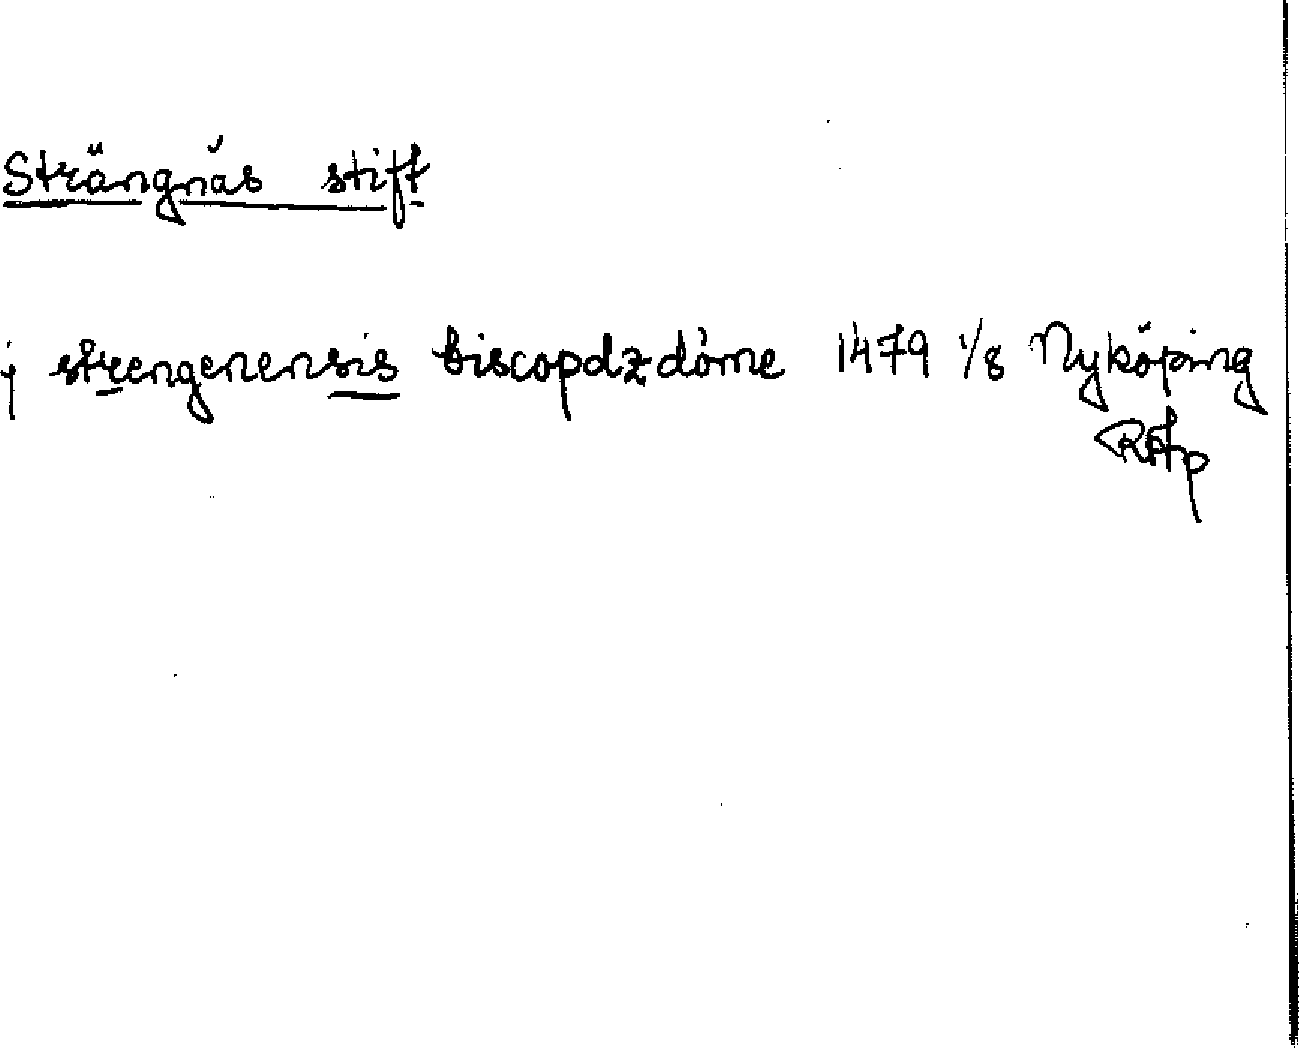 Strängnäs stift
j strengenensis biscopdzdöme 1479 1/8 Nyköping
RAp